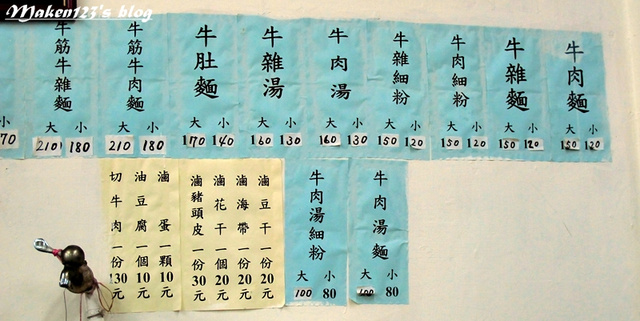 Maken123's blog
牛肉麵 大 小 150 120
牛雜麵 大 小 150 120
牛肉細粉 大 小 150 120
牛雜細粉 大 小 150 120
牛肉湯 大 小 160 130
牛雜湯 大 小 160 130
牛肚麵 大 小 170 140
牛筋牛肉麵 大 小 210 180
牛筋牛雜麵 大 小 210 180
小 70
牛肉湯麵 大 小 100 80
牛肉湯細粉 大 小 100 80
滷豆干一份20元
滷海帶一份20元
滷花干一個20元
滷豬頭皮一份30元
滷蛋一顆10元
油豆腐一個10元
切牛肉一份130元